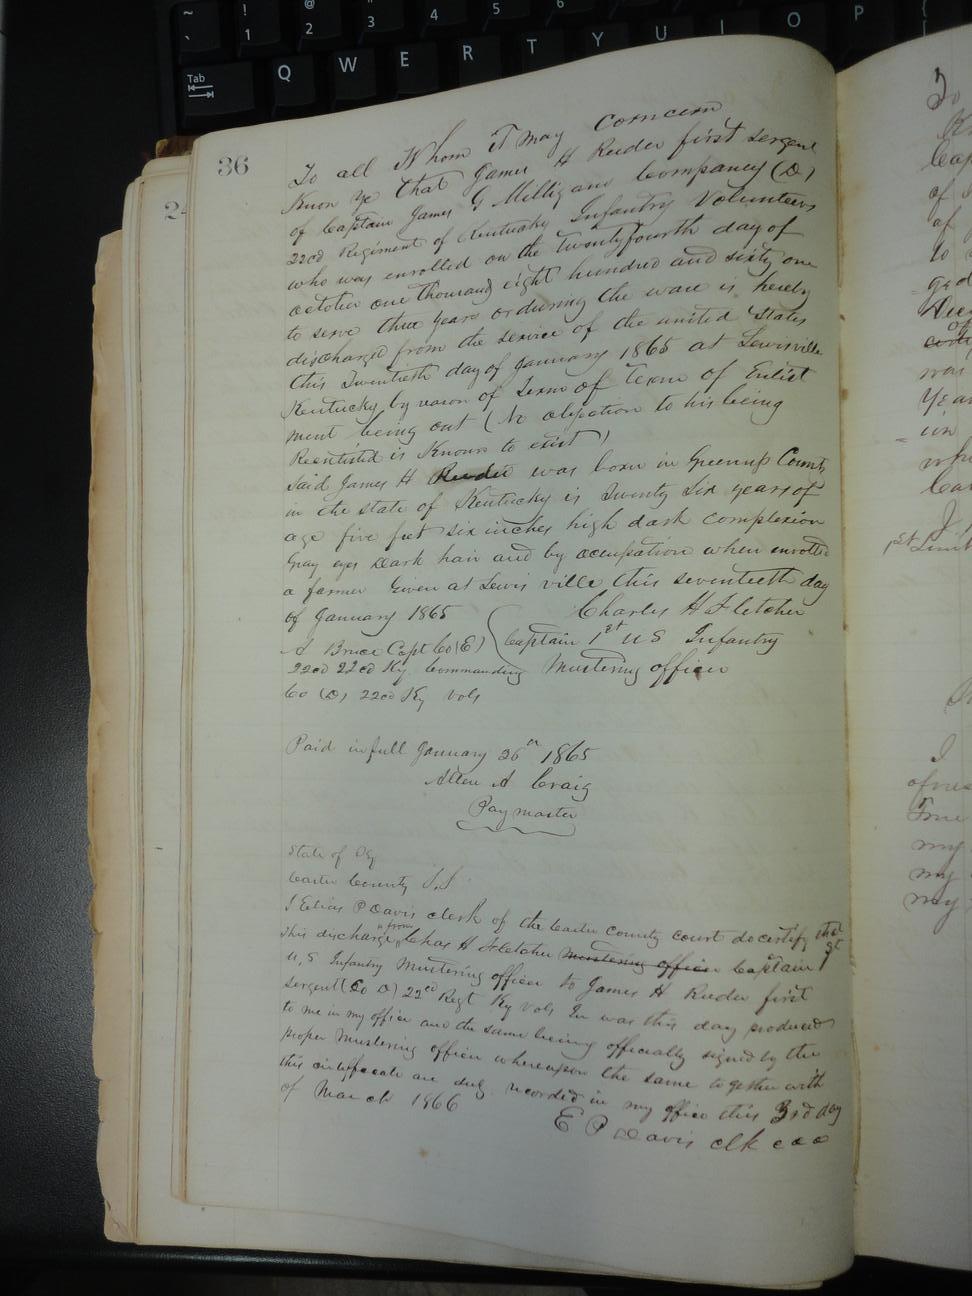 ~ ! @ 3 4 5 6 7 8 9 0
` 1 2
Tab Q W E R T Y U I O P {
36
24
To all Whom it may Concern
Know ye that James H Reeder first sergent
of Captain James G Milligan Company (D)
22cd Regiment of Kentucky Infantry Volunteers
who was enrolled on the twentyfourth day of
october one thousand eight hundred and sixty one
to serve three years or during the ware is hereby
discharged from the service of the united States
this Twentieth day of January 1865 at Lewisville
Kentucky by reason of Term of Term of Enlist
ment being out (No objection to his being
Reenlisted is Known to exist)
Said James H Reeder was born in Greenup County
in the state of Kentucky is Twenty Six years of
age five feet six inches high dark complexion
Gray eyes Dark hair and by occupation when enrolled
a farmer Given at Lewis ville this seventeeth day
of January 1865 Charles H Fletcher
A Bruce Capt Co (E) Captain 1st U S Infantry
22cd 22cd Ky Commanding Mustering officer
Co (D) 22cd Ky Vols
Paid in full January 26th 1865
Allen A Craig
Pay master
State of Ky
Carter County S.S
I Elias P Davis clerk of the Carter County court do certify that
this discharge from Chas H Fletcher mustering officer Captain 1st
U,S Infantry Mustering officer to James H Reeder first
sergent (Co D) 22cd Regt Ky vols In was this day produced
to me in my office and the same being officially signed by the
proper Mustering officer whereupon the same together with
this certificate are duly recorded in my office this 3rd day
of March 1866
E P Davis clk c c c